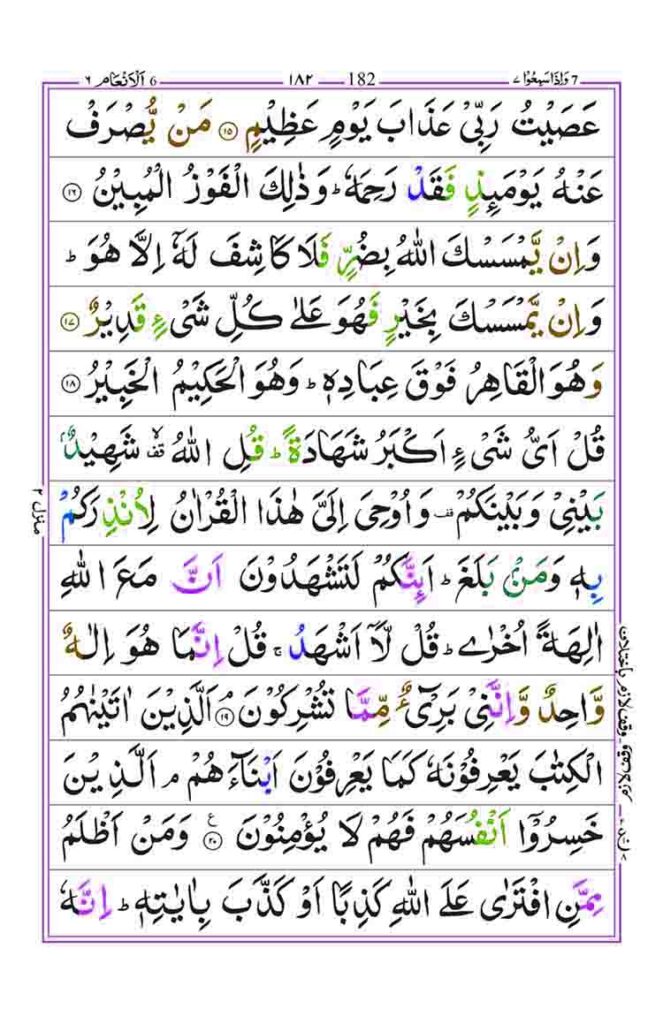 7 وَاِذَاسَمِعُوْا ٧ 182 ١٨٢ 6 اَلْاَنْعَام ٦
عَصَيْتُ رَبِّىْ عَذَابَ يَوْمٍ عَظِيْمٍ ۝١٥ مَنْ يُّصْرَفْ
عَنْهُ يَوْمَئِذٍ فَقَدْ رَحِمَهٗ ؕ وَذٰلِكَ الْفَوْزُ الْمُبِيْنُ ۝١٦
وَاِنْ يَّمْسَسْكَ اللّٰهُ بِضُرٍّ فَلَا كَاشِفَ لَهٗۤ اِلَّا هُوَ ؕ
وَاِنْ يَّمْسَسْكَ بِخَيْرٍ فَهُوَ عَلٰى كُلِّ شَىْءٍ قَدِيْرٌ ۝١٧
وَهُوَ الْقَاهِرُ فَوْقَ عِبَادِهٖ ؕ وَهُوَ الْحَكِيْمُ الْخَبِيْرُ ۝١٨
قُلْ اَىُّ شَىْءٍ اَكْبَرُ شَهَادَةً ؕ قُلِ اللّٰهُ قف شَهِيْدٌۢ
بَيْنِىْ وَبَيْنَكُمْ قف وَاُوْحِىَ اِلَىَّ هٰذَا الْقُرْاٰنُ لِاُنْذِرَكُمْ
بِهٖ وَمَنْۢ بَلَغَ ؕ اَئِنَّكُمْ لَتَشْهَدُوْنَ اَنَّ مَعَ اللّٰهِ
اٰلِهَةً اُخْرٰى ؕ قُلْ لَّاۤ اَشْهَدُ ۚ قُلْ اِنَّمَا هُوَ اِلٰهٌ
وَّاحِدٌ وَّاِنَّنِىْ بَرِىْٓءٌ مِّمَّا تُشْرِكُوْنَ ۝١٩ اَلَّذِيْنَ اٰتَيْنٰهُمُ
الْكِتٰبَ يَعْرِفُوْنَهٗ كَمَا يَعْرِفُوْنَ اَبْنَآءَهُمْ ۘ اَلَّذِيْنَ
خَسِرُوْۤا اَنْفُسَهُمْ فَهُمْ لَا يُؤْمِنُوْنَ ۝٢٠ وَمَنْ اَظْلَمُ
مِمَّنِ افْتَرٰى عَلَى اللّٰهِ كَذِبًا اَوْ كَذَّبَ بِاٰيٰتِهٖ ؕ اِنَّهٗ
منزل ٢